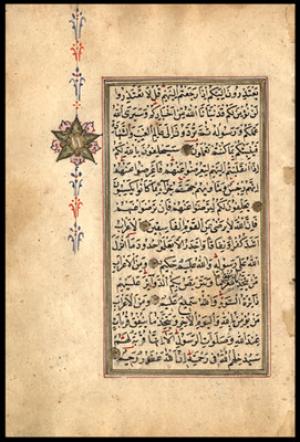 يعتذرون اليكم اذا رجعتم اليهم قل لا تعتذروا
لن نؤمن لكم قد نبأنا الله من اخباركم وسيرى الله
عملكم ورسوله ثم تردون الى عالم الغيب والشهادة
فينبئكم بما كنتم تعملون سيحلفون بالله لكم
اذا انقلبتم اليهم لتعرضوا عنهم فاعرضوا عنهم
انهم رجس ومأويهم جهنم جزاء بما كانوا يكسبون
يحلفون لكم لترضوا عنهم فان ترضوا عنهم
فان الله لا يرضى عن القوم الفاسقين الاعراب
اشد كفرا ونفاقا واجدر الا يعلموا حدود ما انزل
الله على رسوله والله عليم حكيم ومن الاعراب
من يتخذ ما ينفق مغرما ويتربص بكم الدوائر عليهم
دائرة السوء والله سميع عليم ومن الاعراب
من يؤمن بالله واليوم الآخر ويتخذ ما ينفق قربات
عند الله وصلوات الرسول الا انها قربة لهم
سيدخلهم الله في رحمته ان الله غفور رحيم